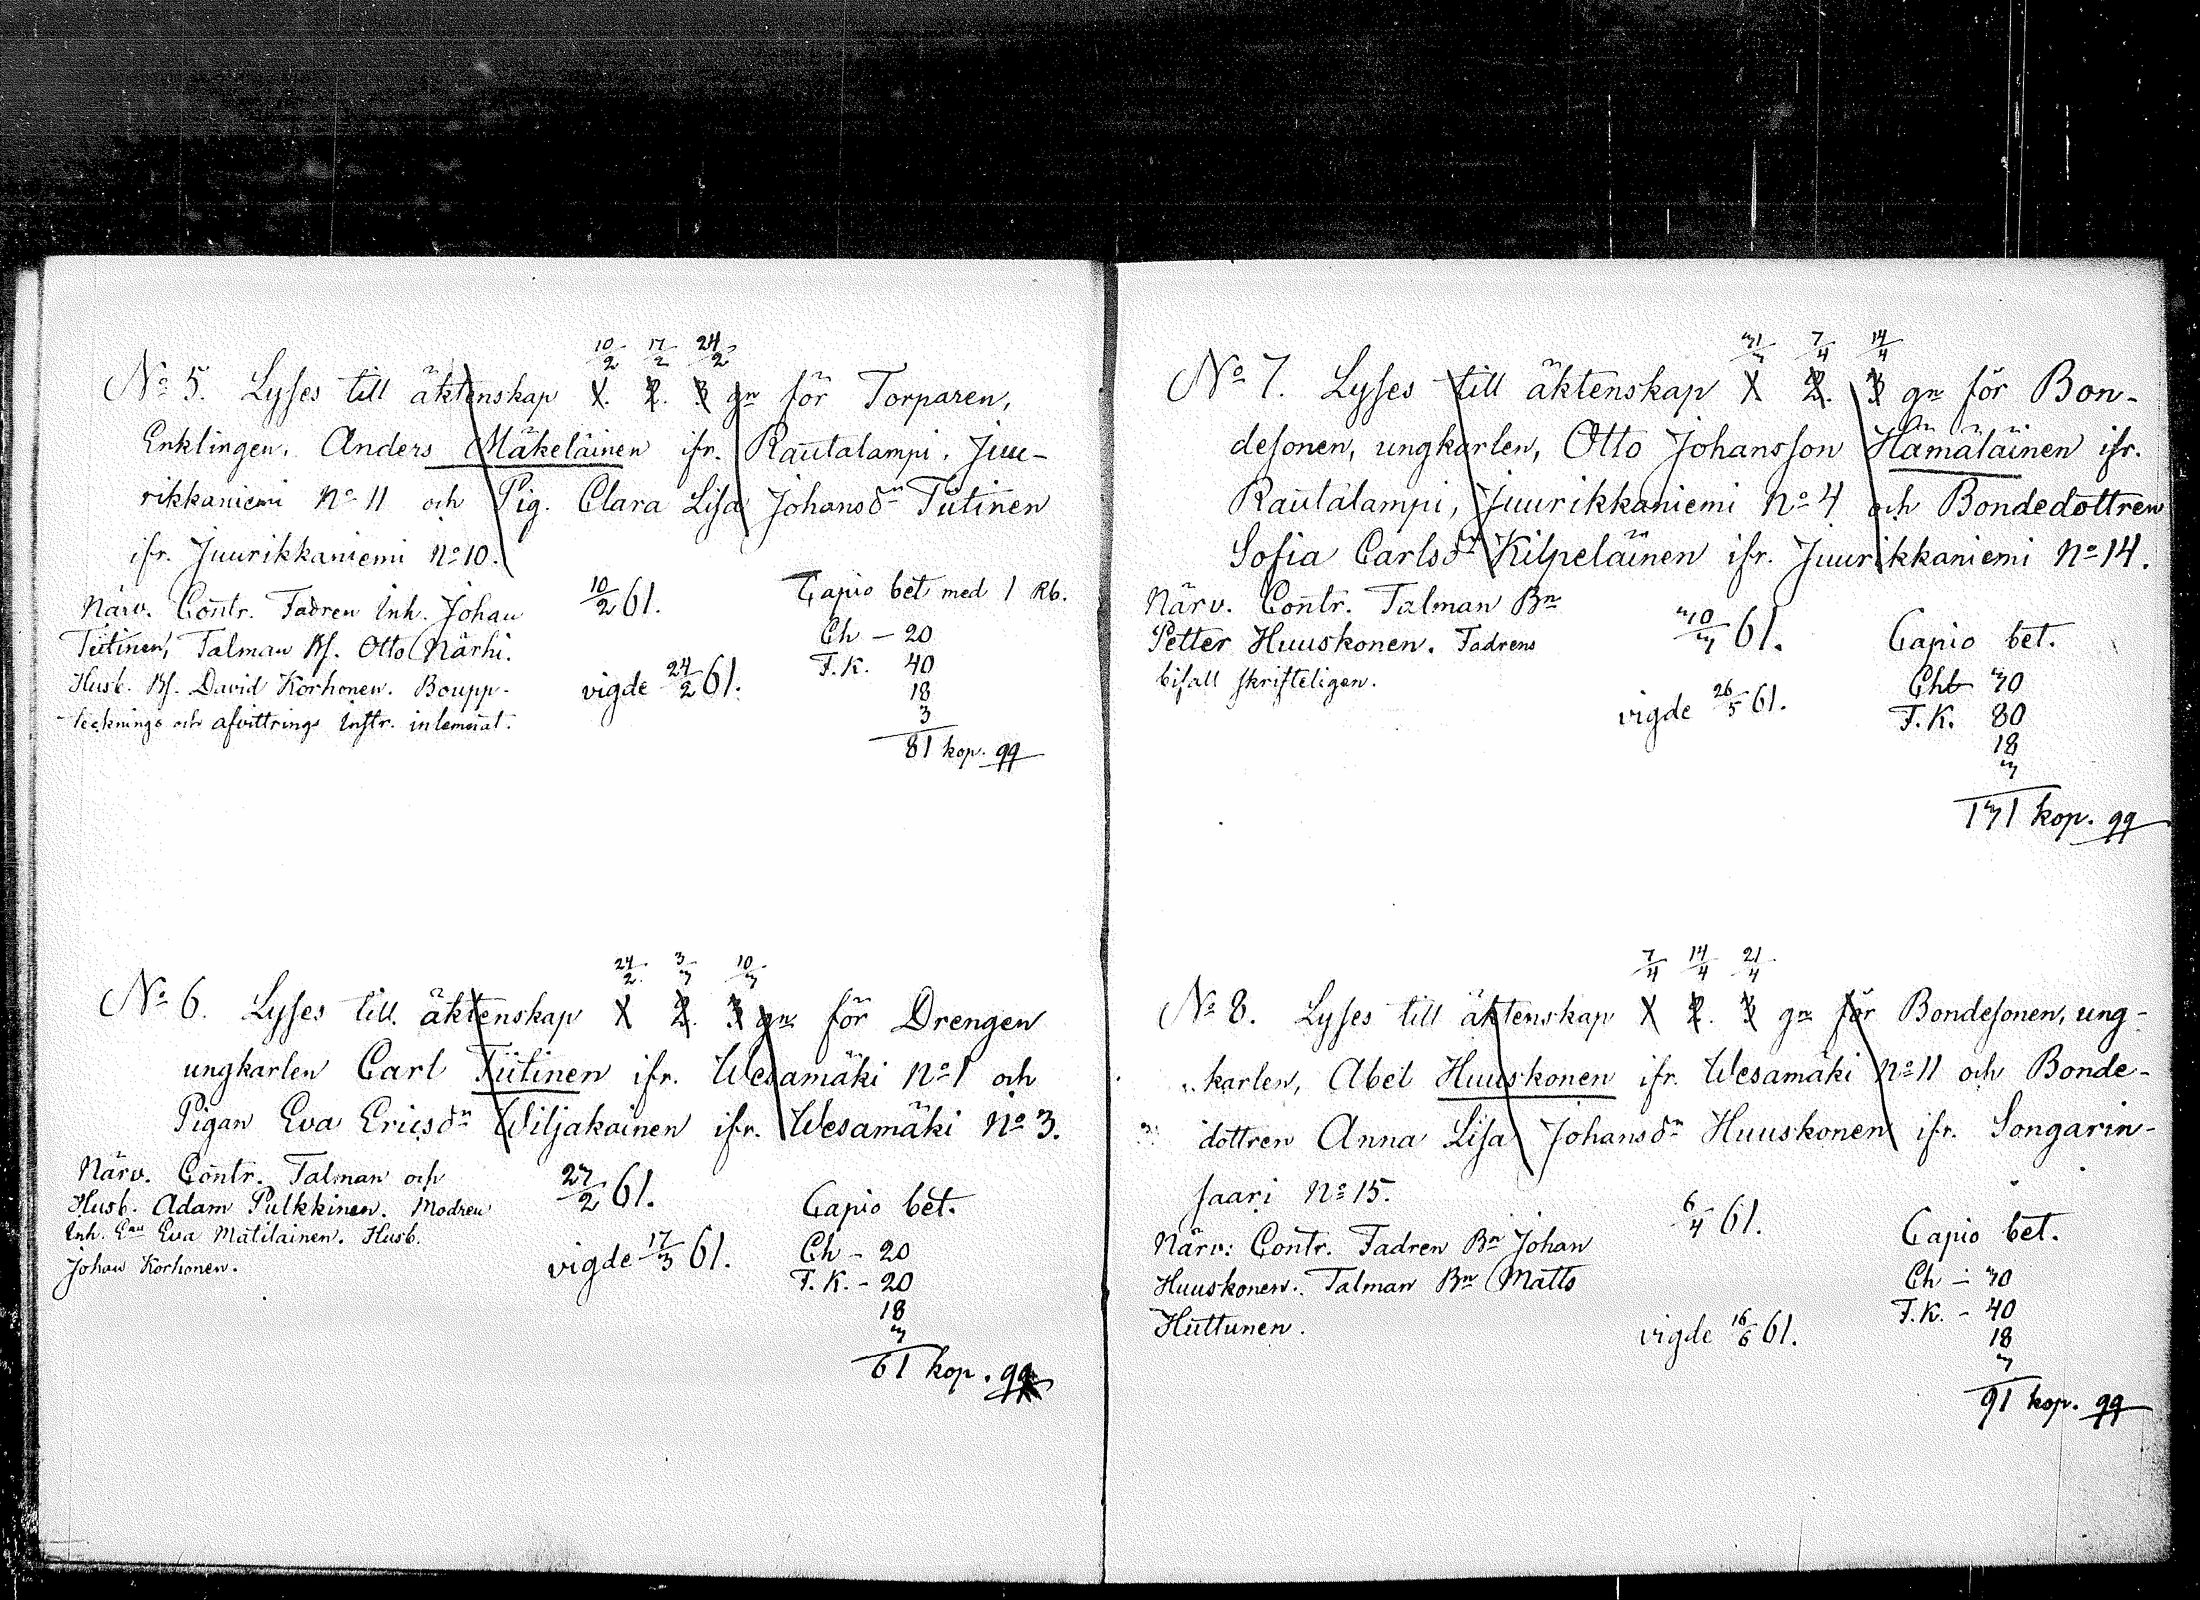 10/2 17/2 24/2
No 5. Lyses till äktenskap 1. 2. 3 gn för Torparen,
Enklingen, Anders Mäkeläinen ifr. Rautalampi, Juu-
rikkaniemi No 11 och Pig. Clara Lisa Johansdn Tiitinen
ifr. Juurikkaniemi No 10.
Närv. Contr. Fadren Inh. Johan
Tiitinen, Talman Bf. Otto Närhi.
Husb. Bf. David Korhonen. Boupp-
tecknings och afvittrings Instr. inlemnat.
10/2 61.
vigde 24/2 61.
Capio bet med 1 Rb.
Ch - 20
F.K. 40
18
3
81 kop. qq
24/2 3/3 10/3
No 6. Lyses till äktenskap 1 2. 3 gn för Drengen
ungkarlen Carl Tiitinen ifr. Wesamäki No 1 och
Pigan Eva Ericsdn Wiljakainen ifr. Wesamäki No 3.
Närv. Contr. Talman och
Husb. Adam Pulkkinen. Modren
Inh. Enn Eva Matilainen. Husb.
Johan Korhonen.
27/2 61.
vigde 17/3 61.
Capio bet.
Ch - 20
F.K. - 20
18
3
61 kop. qq
31/3 7/4 14/4
No 7. Lyses till äktenskap 1 2. 3 gn för Bon-
desonen, ungkarlen, Otto Johansson Hämäläinen ifr.
Rautalampi, Juurikkaniemi No 4 och Bondedottren
Sofia Carlsdr Kilpeläinen ifr. Juurikkaniemi No 14.
Närv. Contr. Talman Bn
Petter Huuskonen. Fadrens
bifall skrifteligen.
30/3 61.
vigde 26/5 61.
Capio bet.
Chb 30
F.K. 80
18
3
131 kop. qq
7/4 14/4 21/4
No 8. Lyses till äktenskap 1 2. 3 gn för Bondesonen, ung-
karlen, Abel Huuskonen ifr. Wesamäki No 11 och Bonde-
dottren Anna Lisa Johansdn Huuskonen ifr. Songarin-
saari No 15.
Närv: Contr. Fadren Bn Johan
Huuskonen. Talman Bn Matts
Huttunen.
6/4 61.
vigde 16/6 61.
Capio bet.
Ch - 30
F.K. - 40
18
3
91 kop. qq